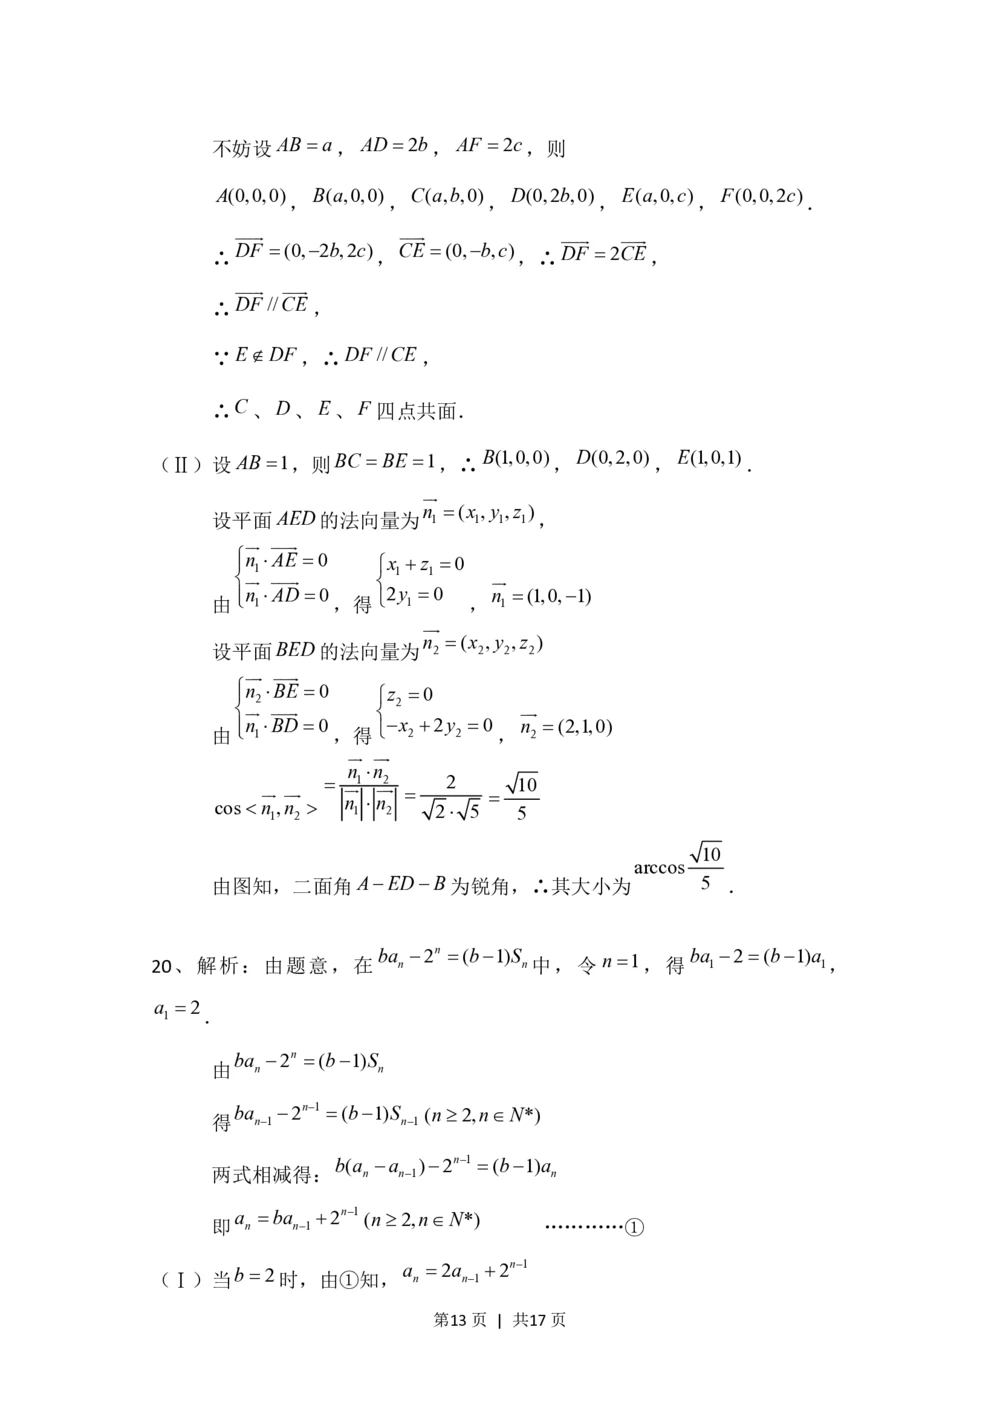 不妨设 AB = a ， AD = 2b ， AF = 2c ，则
A(0,0,0) ， B(a,0,0) ， C(a,b,0) ， D(0,2b,0) ， E(a,0,c) ， F(0,0,2c) ．
∴ \overrightarrow{DF} = (0,−2b,2c) ， \overrightarrow{CE} = (0,−b,c) ，∴ \overrightarrow{DF} = 2\overrightarrow{CE} ，
∴ \overrightarrow{DF} // \overrightarrow{CE} ，
∵ E ∉ DF ，∴ DF // CE ，
∴ C 、 D 、 E 、 F 四点共面．
（Ⅱ）设 AB =1，则 BC = BE =1，∴ B(1,0,0) ， D(0,2,0) ， E(1,0,1) ．
设平面 AED 的法向量为 \overrightarrow{n_1} = (x_1, y_1, z_1) ，
由 \begin{cases} \overrightarrow{n_1}·\overrightarrow{AE} = 0 \\ \overrightarrow{n_1}·\overrightarrow{AD} = 0 \end{cases} ，得 \begin{cases} x_1 + z_1 = 0 \\ 2y_1 = 0 \end{cases} ， \overrightarrow{n_1} = (1,0,−1)
设平面 BED 的法向量为 \overrightarrow{n_2} = (x_2, y_2, z_2)
由 \begin{cases} \overrightarrow{n_2}·\overrightarrow{BE} = 0 \\ \overrightarrow{n_1}·\overrightarrow{BD} = 0 \end{cases} ，得 \begin{cases} z_2 = 0 \\ −x_2 + 2y_2 = 0 \end{cases} ， \overrightarrow{n_2} = (2,1,0)
cos < \overrightarrow{n_1}, \overrightarrow{n_2} > = \frac{\overrightarrow{n_1}·\overrightarrow{n_2}}{|\overrightarrow{n_1}|·|\overrightarrow{n_2}|} = \frac{2}{\sqrt{2}·\sqrt{5}} = \frac{\sqrt{10}}{5}
由图知，二面角 A − ED − B 为锐角，∴其大小为 arccos \frac{\sqrt{10}}{5} ．
20、解析：由题意，在 ba_n − 2^n = (b−1)S_n 中，令 n =1，得 ba_1 − 2 = (b−1)a_1 ，
a_1 = 2 ．
由 ba_n − 2^n = (b−1)S_n
得 ba_{n−1} − 2^{n−1} = (b−1)S_{n−1} (n ≥ 2, n ∈ N*)
两式相减得： b(a_n − a_{n−1}) − 2^{n−1} = (b−1)a_n
即 a_n = ba_{n−1} + 2^{n−1} (n ≥ 2, n ∈ N*) …………①
（Ⅰ）当 b = 2 时，由①知， a_n = 2a_{n−1} + 2^{n−1}
第13 页 | 共17 页